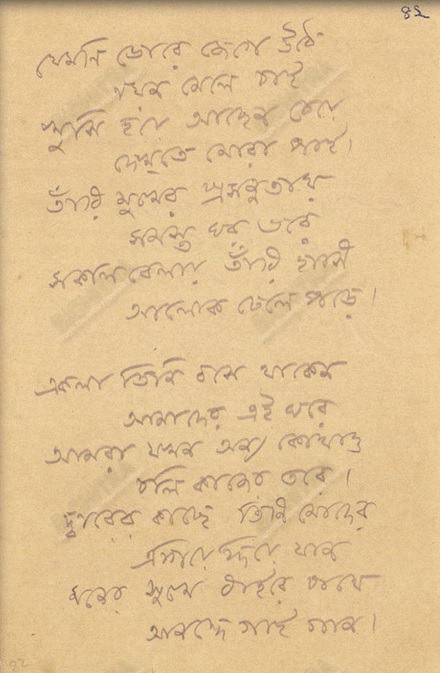 ৪২
যেমনি ভোরে জেগে উঠে
নয়ন মেলে চাই
খুসি হয়ে আছেন চেয়ে
দেখ্‌তে মোরা পাই।
তাঁরি মুখের প্রসন্নতায়
সমস্ত ঘর ভরে
সকালবেলায় তাঁরি হাসি
আলোক ঢেলে পড়ে।
একলা তিনি বসে থাকেন
আমাদের এই ঘরে
আমরা যখন অন্য কোথাও
চলি কাজের তরে।
দ্বারের কাছে তিনি মোদের
এগিয়ে দিয়ে যান
মনের সুখে ধাইরে পথে
আনন্দে গাই গান।